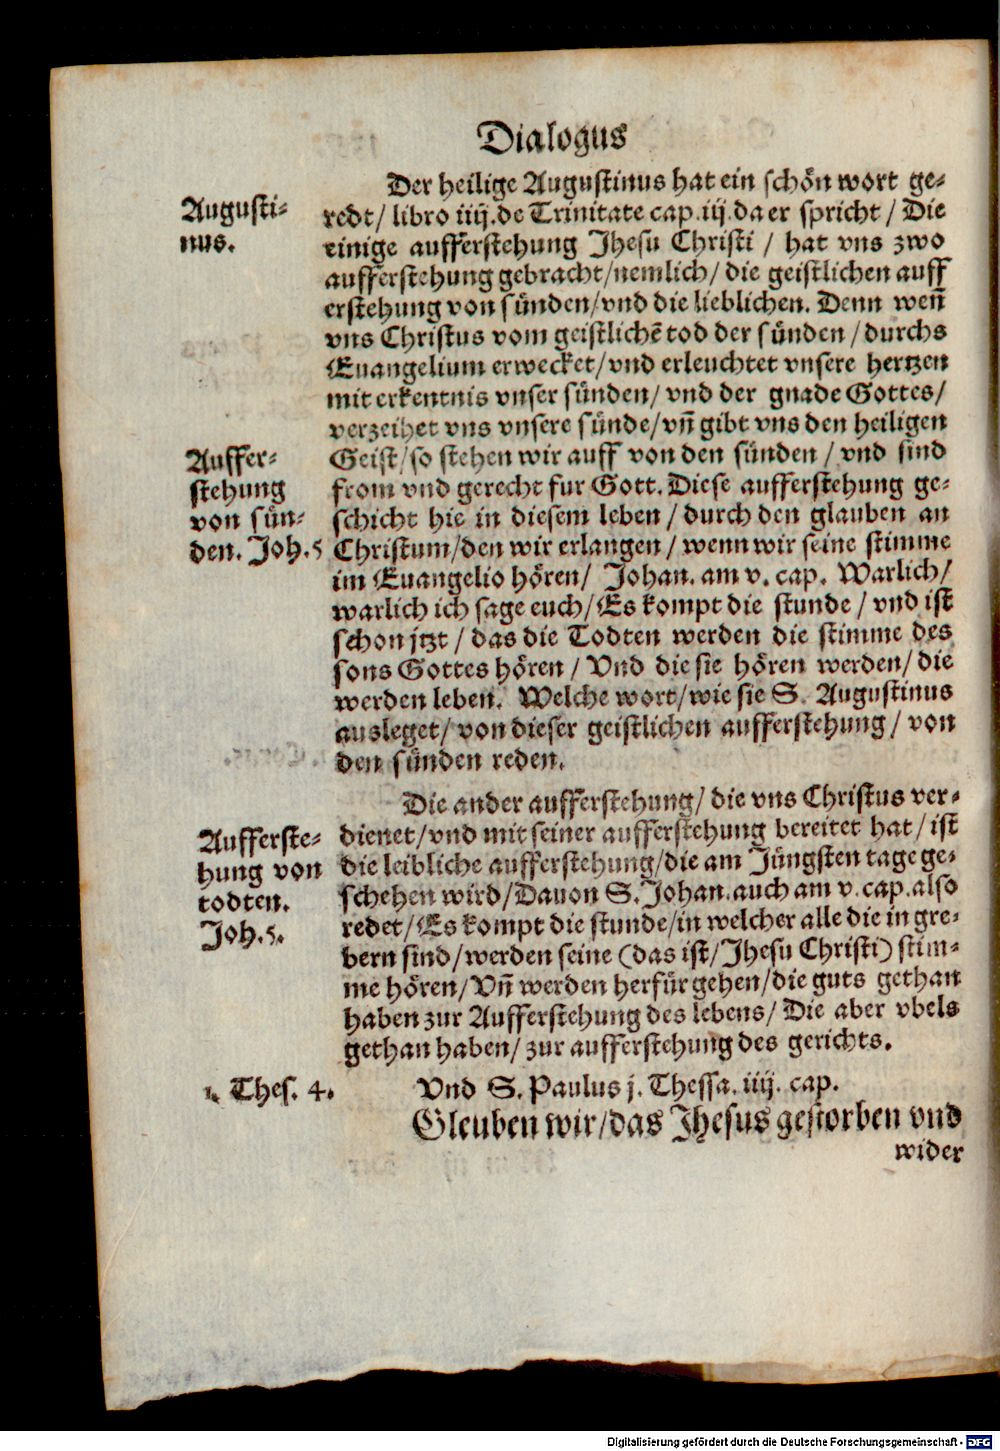 Dialogus
Der heilige Augustinus hat ein schön wort ge-
Augusti-
nus.
redt/ libro iiij. de Trinitate cap. iij. da er spricht / Die
einige aufferstehung Jhesu Christi / hat vns zwo
aufferstehung gebracht/nemlich/ die geistlichen auff
erstehung von sünden/vnd die lieblichen. Denn weñ
vns Christus vom geistlichē tod der sünden / durchs
Euangelium erwecket/vnd erleuchtet vnsere hertzen
mit erkentnis vnser sünden/ vnd der gnade Gottes/
verzeihet vns vnsere sünde/vñ gibt vns den heiligen
Auffer-
stehung
von sün-
den. Joh.5
Geist/so stehen wir auff von den sünden / vnd sind
from vnd gerecht fur Gott. Diese aufferstehung ge-
schicht hie in diesem leben / durch den glauben an
Christum/den wir erlangen / wenn wir seine stimme
im Euangelio hören/ Johan. am v. cap. Warlich/
warlich ich sage euch/Es kompt die stunde / vnd ist
schon jtzt / das die Todten werden die stimme des
sons Gottes hören / Vnd die sie hören werden/ die
werden leben. Welche wort/wie sie S. Augustinus
ausleget/ von dieser geistlichen aufferstehung/ von
den sünden reden.
Die ander aufferstehung/ die vns Christus ver-
Aufferste-
hung von
todten.
Joh.5.
dienet/vnd mit seiner aufferstehung bereitet hat/ ist
die leibliche aufferstehung/die am Jüngsten tage ge-
schehen wird/Dauon S. Johan. auch am v. cap. also
redet/Es kompt die stunde/in welcher alle die in gre-
bern sind/werden seine (das ist/Jhesu Christi) stim-
me hören/Vñ werden herfür gehen/die guts gethan
haben zur Aufferstehung des lebens/ Die aber vbels
gethan haben/ zur aufferstehung des gerichts.
1. Thes. 4.
Vnd S. Paulus j. Thessa. iiij. cap.
Gleuben wir/das Jhesus gestorben vnd
wider
Digitalisierung gefördert durch die Deutsche Forschungsgemeinschaft - DFG